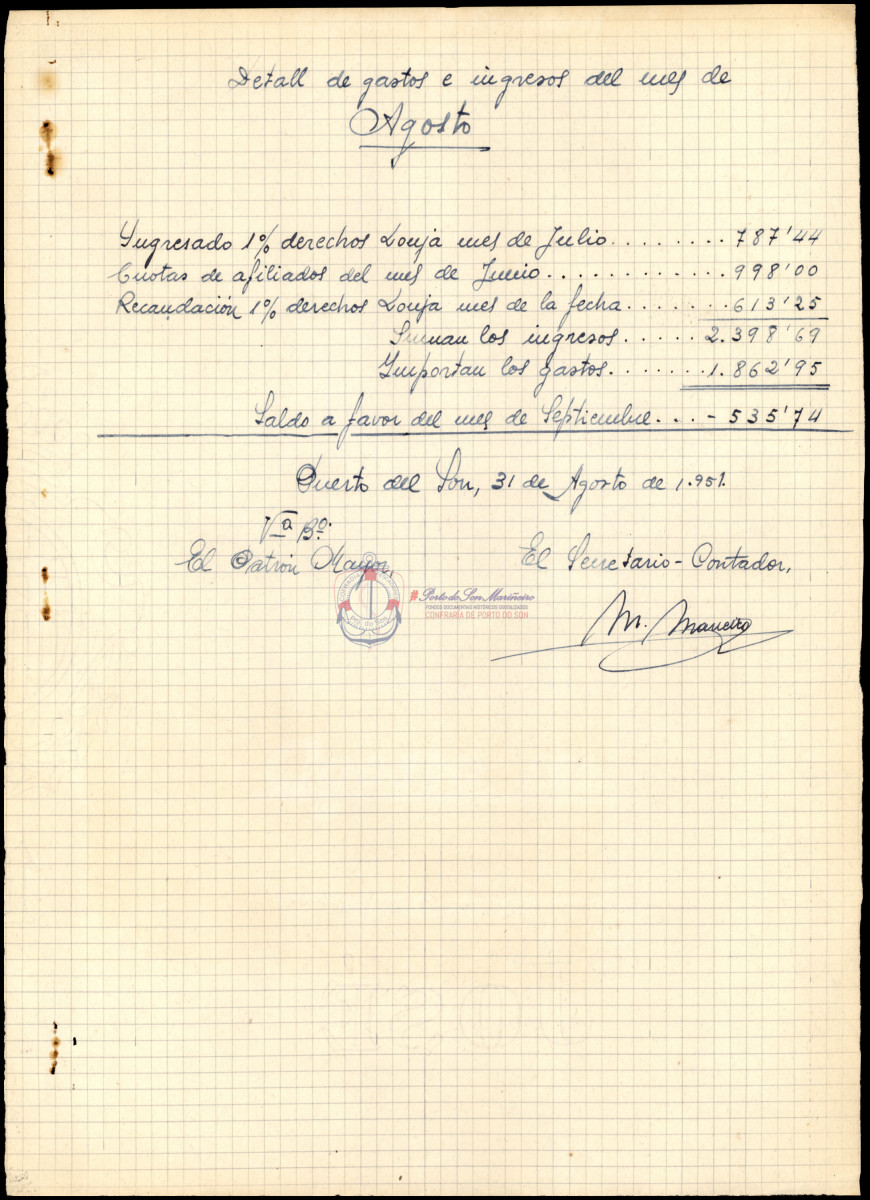 Detall de gastos e ingresos del mes de
Agosto
Ingresado 1% derechos Lonja mes de Julio........787'44
Cuotas de afiliados del mes de Junio............998'00
Recaudación 1% derechos Lonja mes de la fecha........613'25
Suman los ingresos......2.398'69
Importan los gastos........1.862'95
Saldo a favor del mes de Septiembre...-535'74
Puerto del Son, 31 de Agosto de 1.951.
Vª Bº.
El Patrón Mayor,
El Secretario-Contador,
#Porto do Son Mariñeiro
FONDOS DOCUMENTAIS HISTÓRICOS DIXITALIZADOS
CONFRARÍA DE PORTO DO SON
M. Maneiro